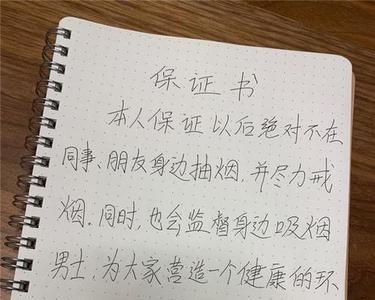 保证书
本人保证以后绝对不在
同事、朋友身边抽烟，并尽力戒
烟．同时，也会监督身边吸烟
男士，为大家营造一个健康的环